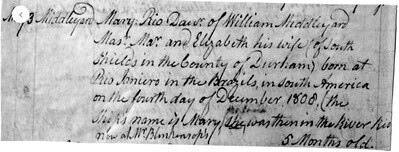 May 3 Middleyard Mary Rio Daur. of William Middleyard
Masr. Mar. and Elizabeth his wife (of South
Shields in the County of Durham) born at
Rio Janiero in the Brazils, in South America
on the fourth day of December, 1808, (the
Ship's name is Mary) She was then in the River Rio
now at Mr. Blinkensop's 5 Months old.